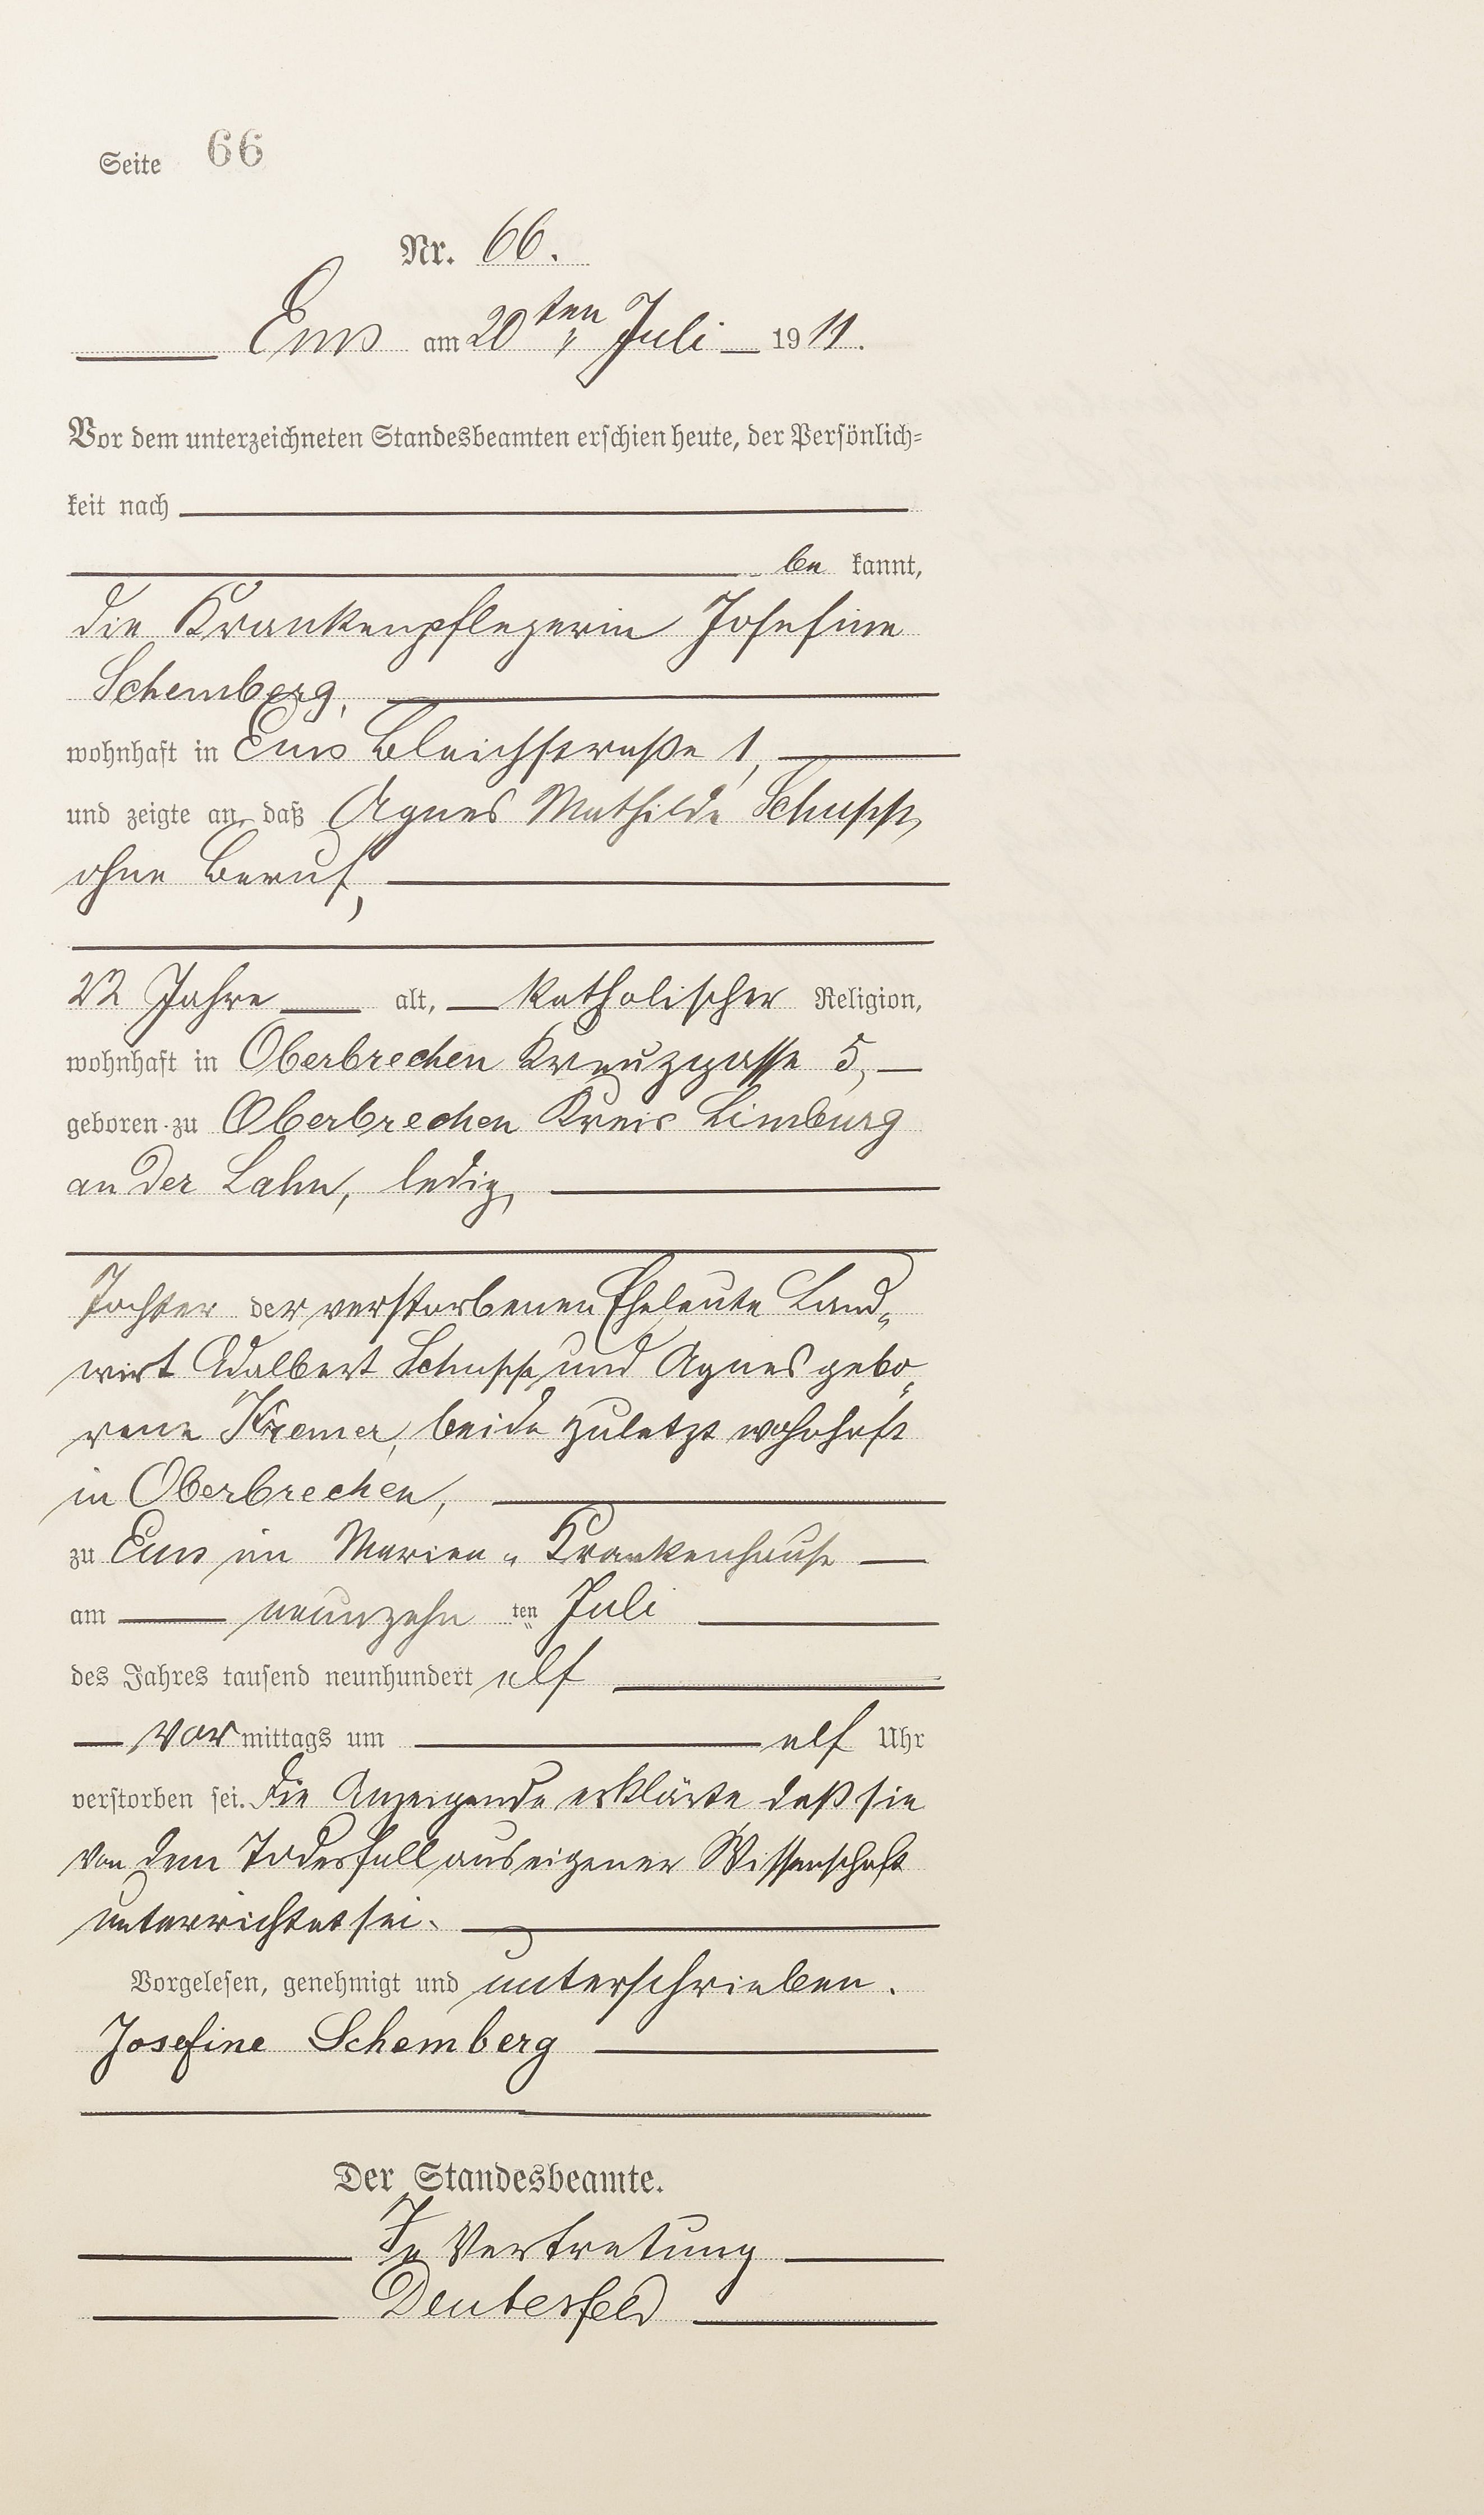 Seite 66
Nr. 66.
Ems am 20ten Juli 1911.
Vor dem unterzeichneten Standesbeamten erschien heute, der Persönlich-
keit nach
be kannt,
die Krankenpflegerin Josefine
Schemberg,
wohnhaft in Ems Bleichstraße 1,
und zeigte an, daß Agnes Mathilde Schupp,
ohne Beruf,
22 Jahre alt, katholischer Religion,
wohnhaft in Oberbrechen Kreuzgasse 5,
geboren zu Oberbrechen Kreis Limburg
an der Lahn, ledig,
Tochter der verstorbenen Eheleute Land-
wirt Adalbert Schupp und Agnes gebo-
rene Kremer, beide zuletzt wohnhaft
in Oberbrechen,
zu Ems im Marien-Krankenhause
am neunzehn ten Juli
des Jahres tausend neunhundert elf
Vor mittags um elf Uhr
verstorben sei. Die Anzeigende erklärte daß sie
von dem Todesfall aus eigener Wissenschaft
unterrichtet sei.
Vorgelesen, genehmigt und unterschrieben.
Josefine Schemberg
Der Standesbeamte.
In Vertretung
Deutesfeld